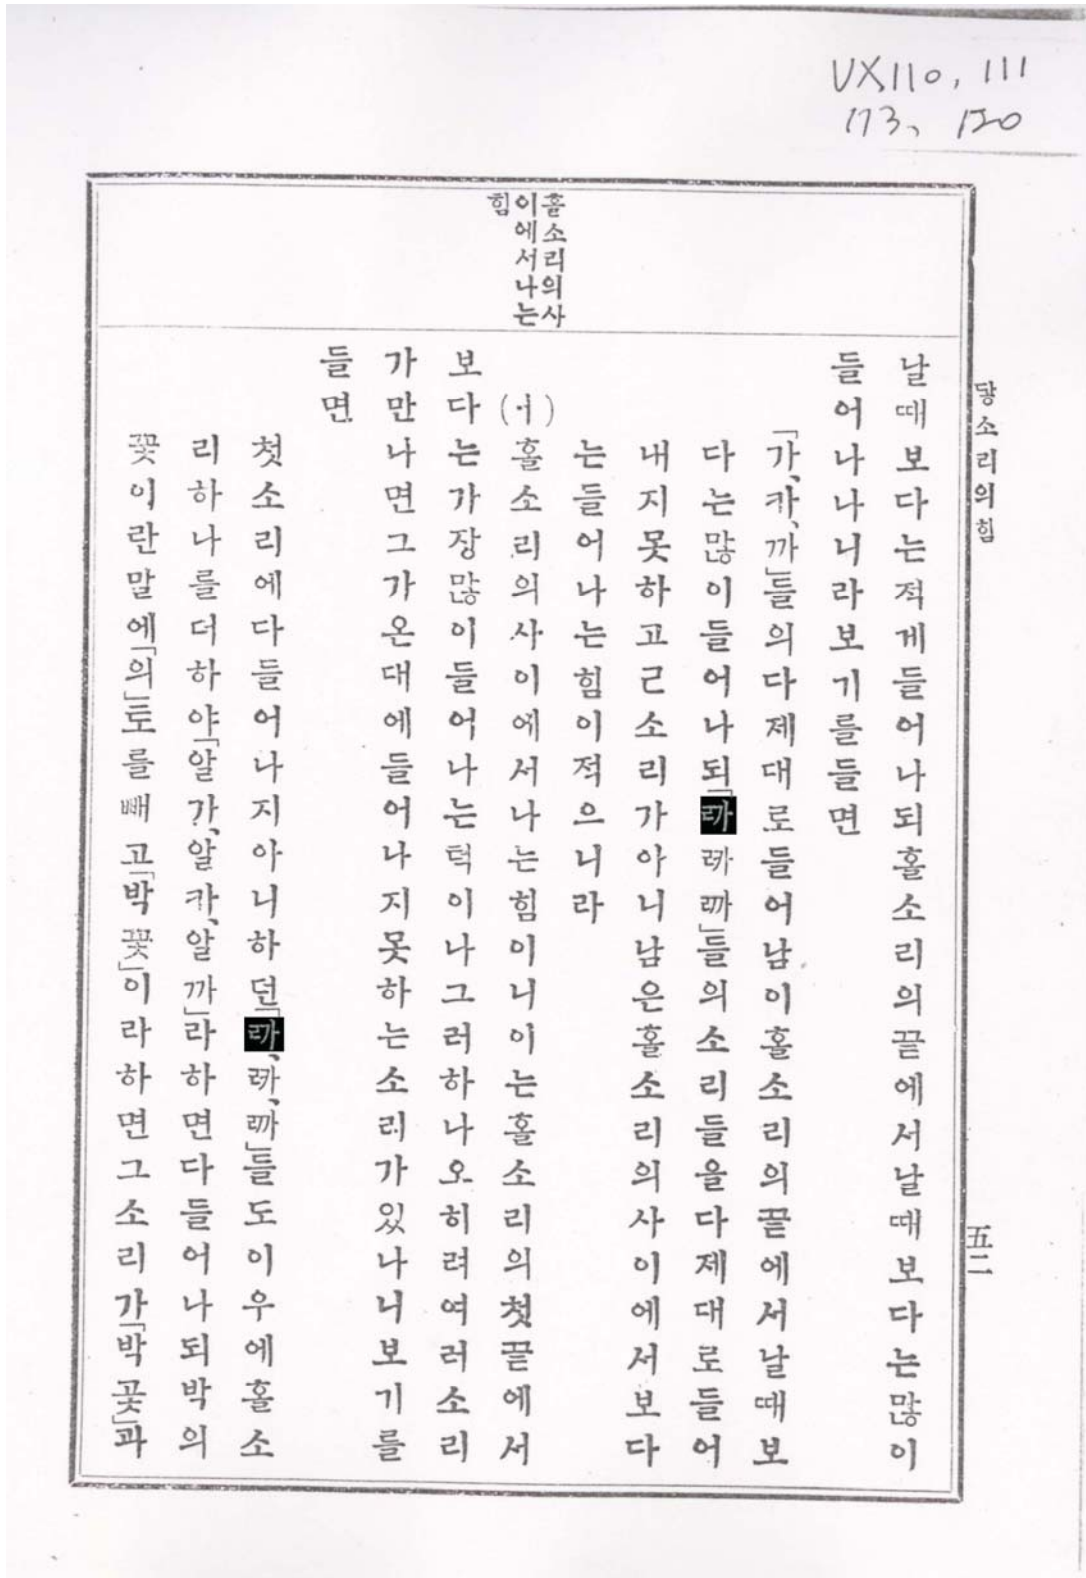 VX110, 111
173、120
닿소리의힘
五二
홀소리의사
이에서나는
힘
날때보다는적게들어나되홀소리의끝에서날때보다는많이
들어나나니라보기를들면
「가、카、까」들의다제대로들어남이홀소리의끝에서날때보
다는많이들어나되「ꥤᅡꥮᅡꥥᅡ」들의소리들을다제대로들어
내지못하고근소리가아니남은홀소리의사이에서보다
는들어나는힘이적으니라
(ㆎ)홀소리의사이에서나는힘이니이는홀소리의첫끝에서
보다는가장많이들어나는턱이나그러하나오히려여러소리
가만나면그가온대에들어나지못하는소리가있나니보기를
들면
첫소리에다들어나지아니하던「ꥤᅡ、ꥮᅡ、ꥥᅡ」들도이우에홀소
리하나를더하야「알가、알카、알까」라하면다들어나되박의
꽃이란말에「의」토를빼고「박꽃」이라하면그소리가「박곷」과